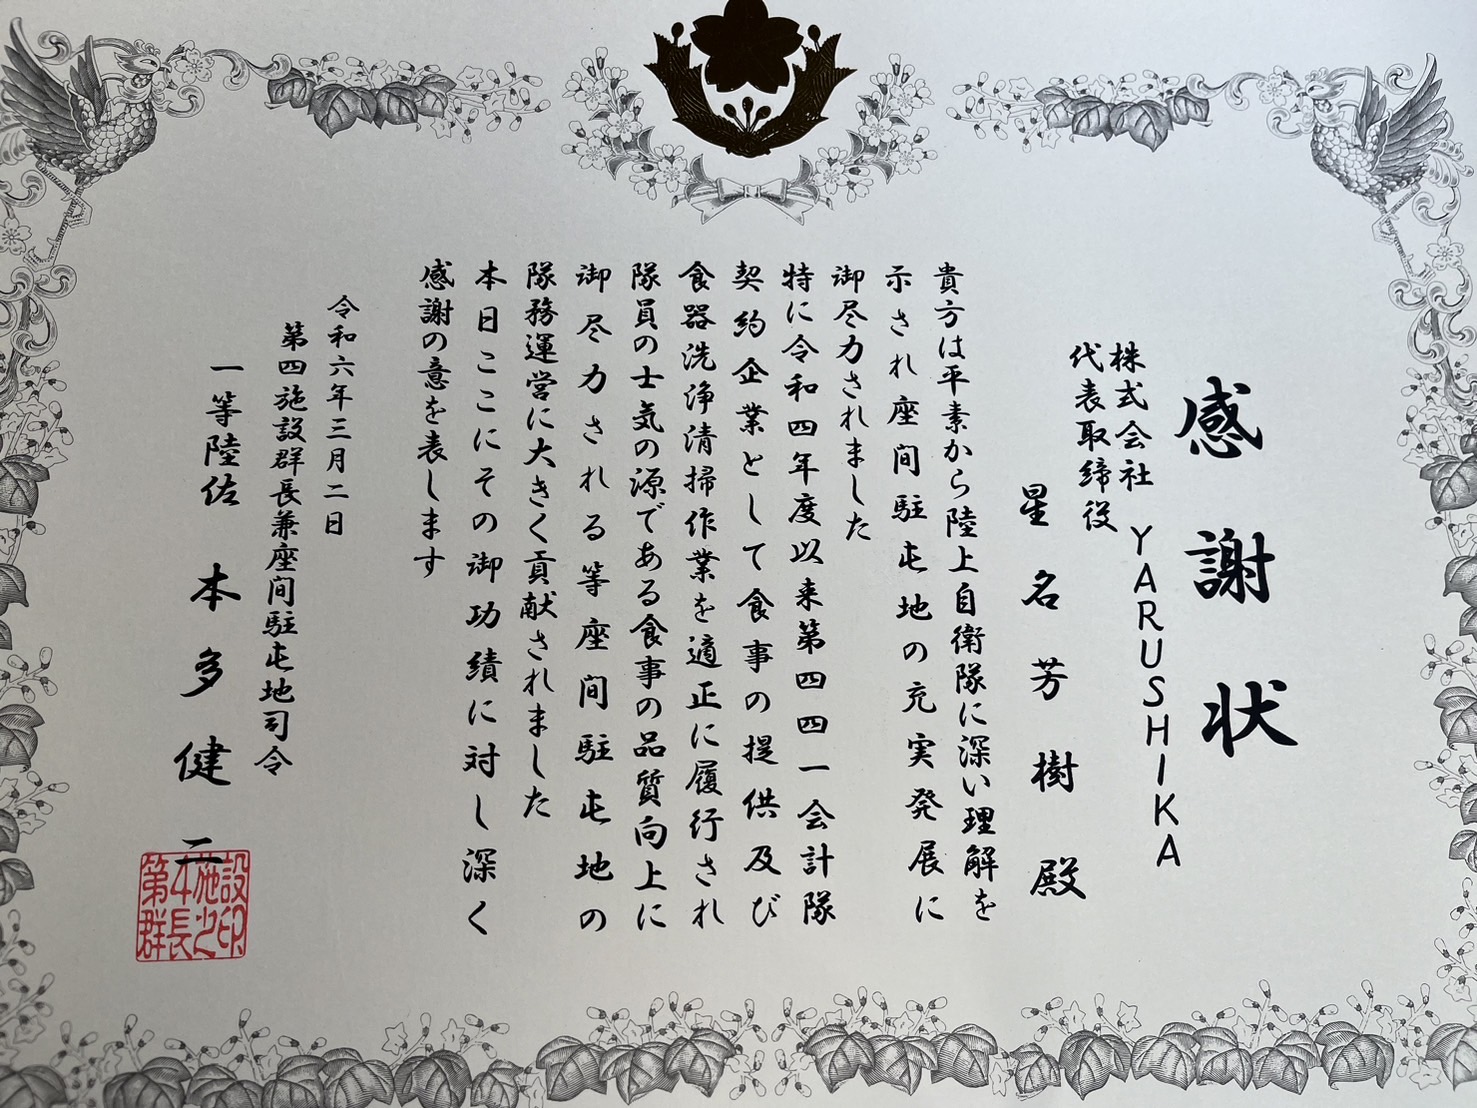 感謝状
株式会社 YARUSHIKA
代表取締役
星名芳樹殿
貴方は平素から陸上自衛隊に深い理解を
示され座間駐屯地の充実発展に
御尽力されました
特に令和四年度以来第四四一会計隊
契約企業として食事の提供及び
食器洗浄清掃作業を適正に履行され
隊員の士気の源である食事の品質向上に
御尽力される等座間駐屯地の
隊務運営に大きく貢献されました
本日ここにその御功績に対し深く
感謝の意を表します
令和六年三月二日
第四施設群長兼座間駐屯地司令
一等陸佐 本多健二
設印
施之
4長
第群